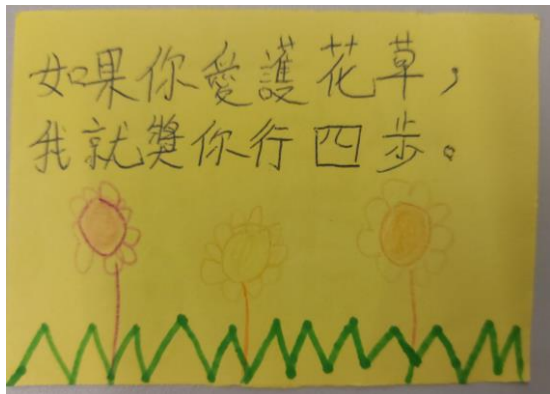 如果你愛護花草，
我就獎你行四步。